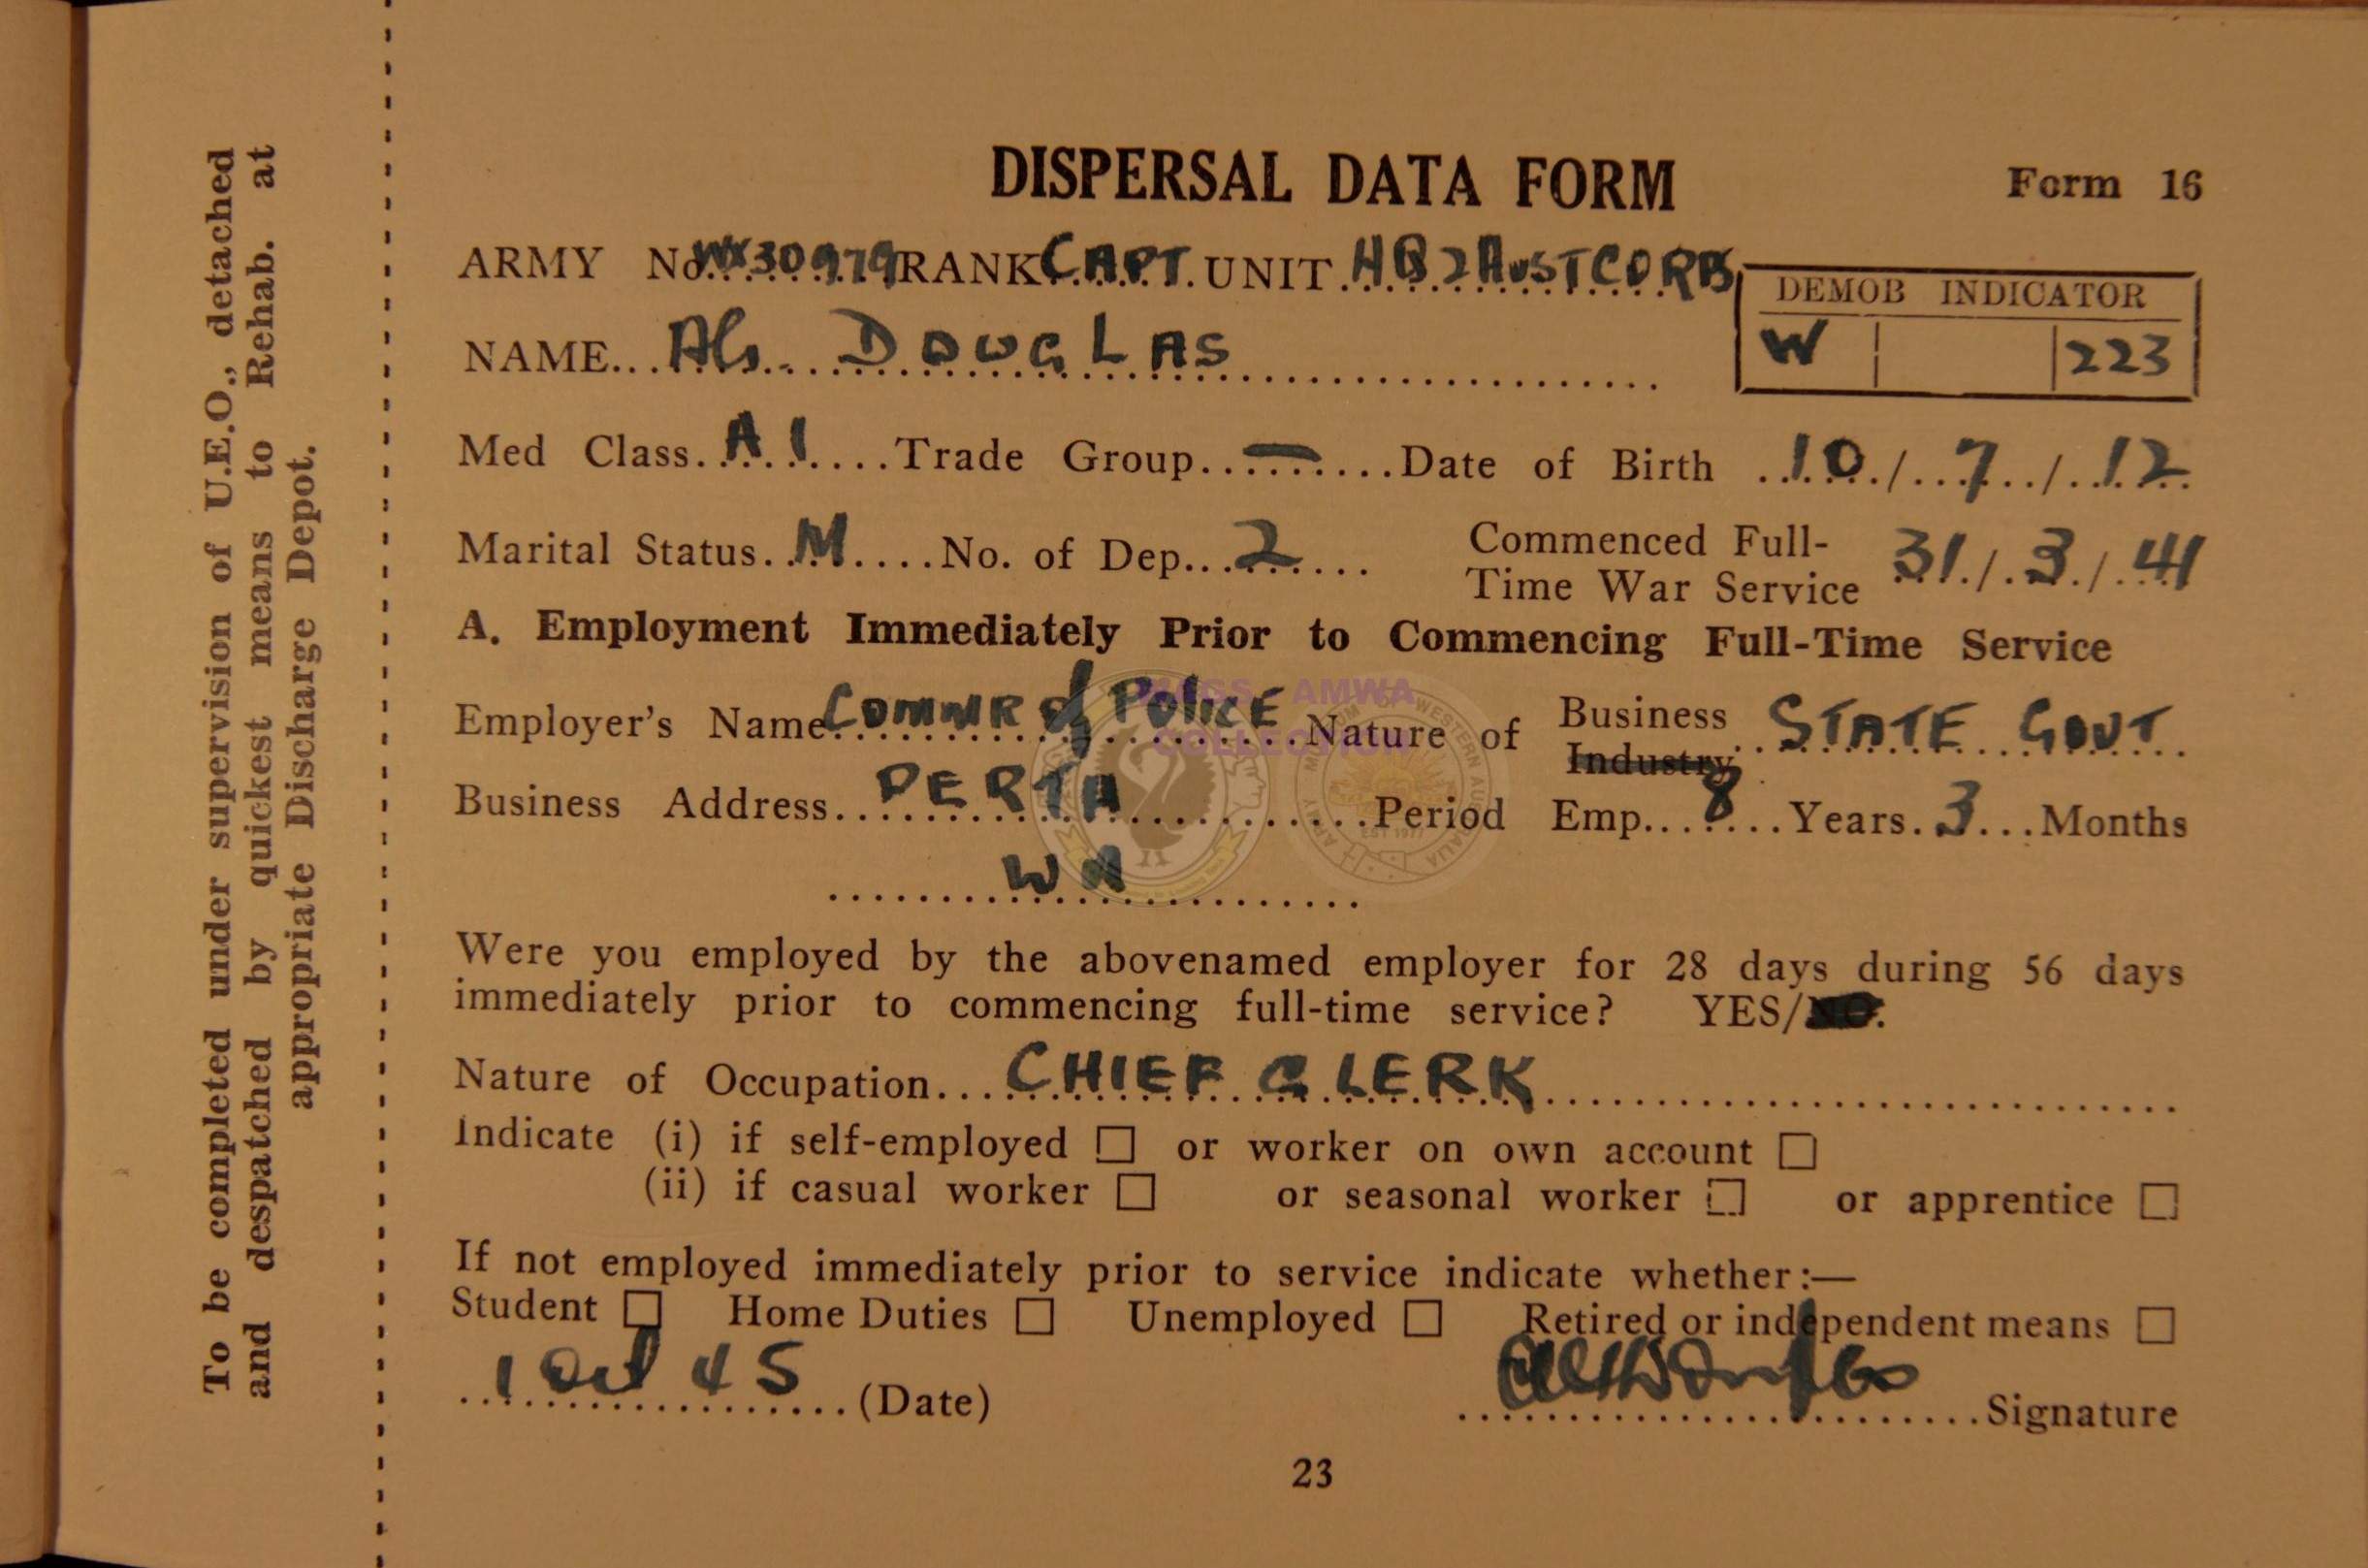 To be completed under supervision of U.E.O., detached
and despatched by quickest means to Rehab. at
appropriate Discharge Depot.
DISPERSAL DATA FORM Form 16
ARMY No. WX30979 RANK CAPT. UNIT HQ 2 AUST CORPS
DEMOB INDICATOR
W 223
NAME... DOUGLAS
Med Class. A1 ....Trade Group..—....Date of Birth ..10./..7../.12..
Marital Status..M....No. of Dep...2.... Commenced Full-
Time War Service 31./.3./.41
A. Employment Immediately Prior to Commencing Full-Time Service
Employer's Name COMMR of POLICE Nature of Business
Industry STATE GOVT
Business Address..PERTH....Period Emp...8...Years.3...Months
WA
Were you employed by the abovenamed employer for 28 days during 56 days
immediately prior to commencing full-time service? YES/NO.
Nature of Occupation...CHIEF CLERK
Indicate (i) if self-employed □ or worker on own account □
(ii) if casual worker □ or seasonal worker □ or apprentice □
If not employed immediately prior to service indicate whether:—
Student □ Home Duties □ Unemployed □ Retired or independent means □
1 Oct 45 (Date)
Signature
23
AMWA
COLLECTION
MUSEUM OF WESTERN AUSTRALIA
ARMY
EST 1977